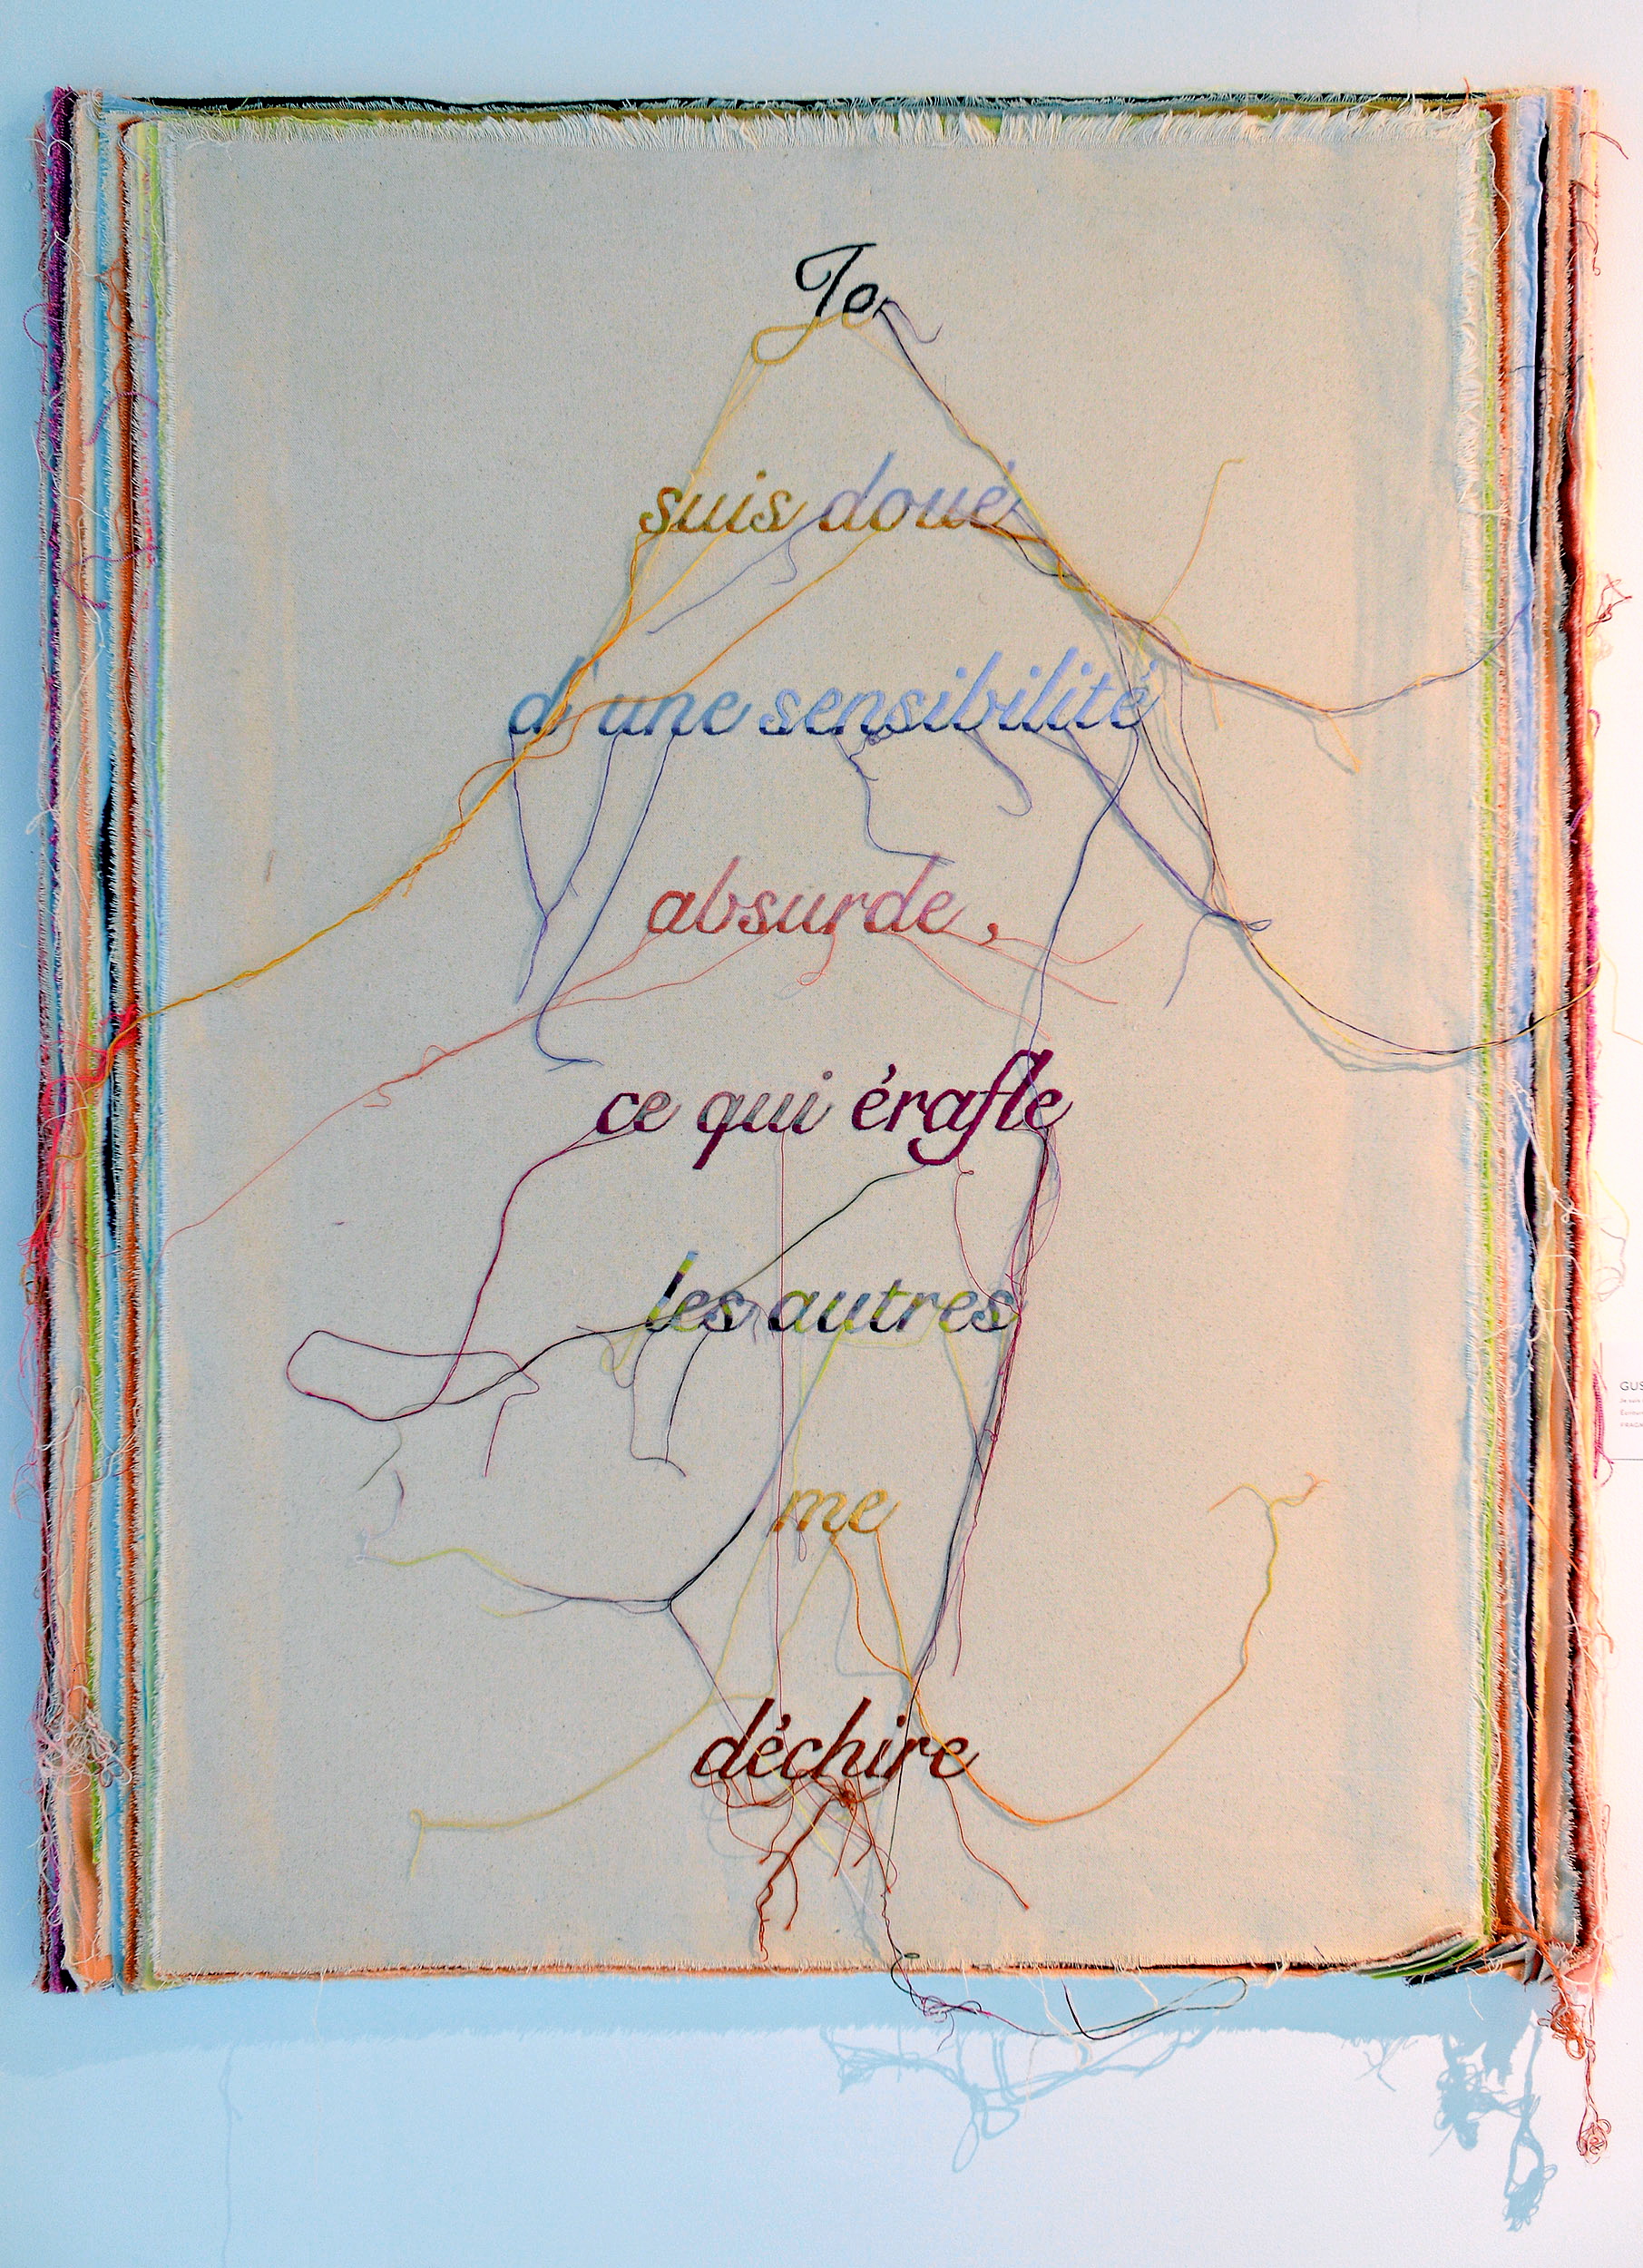 Je
suis doué
d'une sensibilité
absurde,
ce qui érafle
les autres
me
déchire
GUS